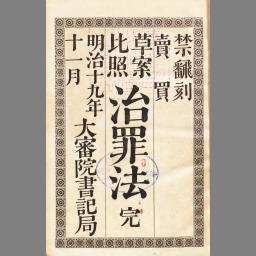 禁飜刻
賣買
草案
比照
治罪法 完
明治十九年
十一月
大審院書記局